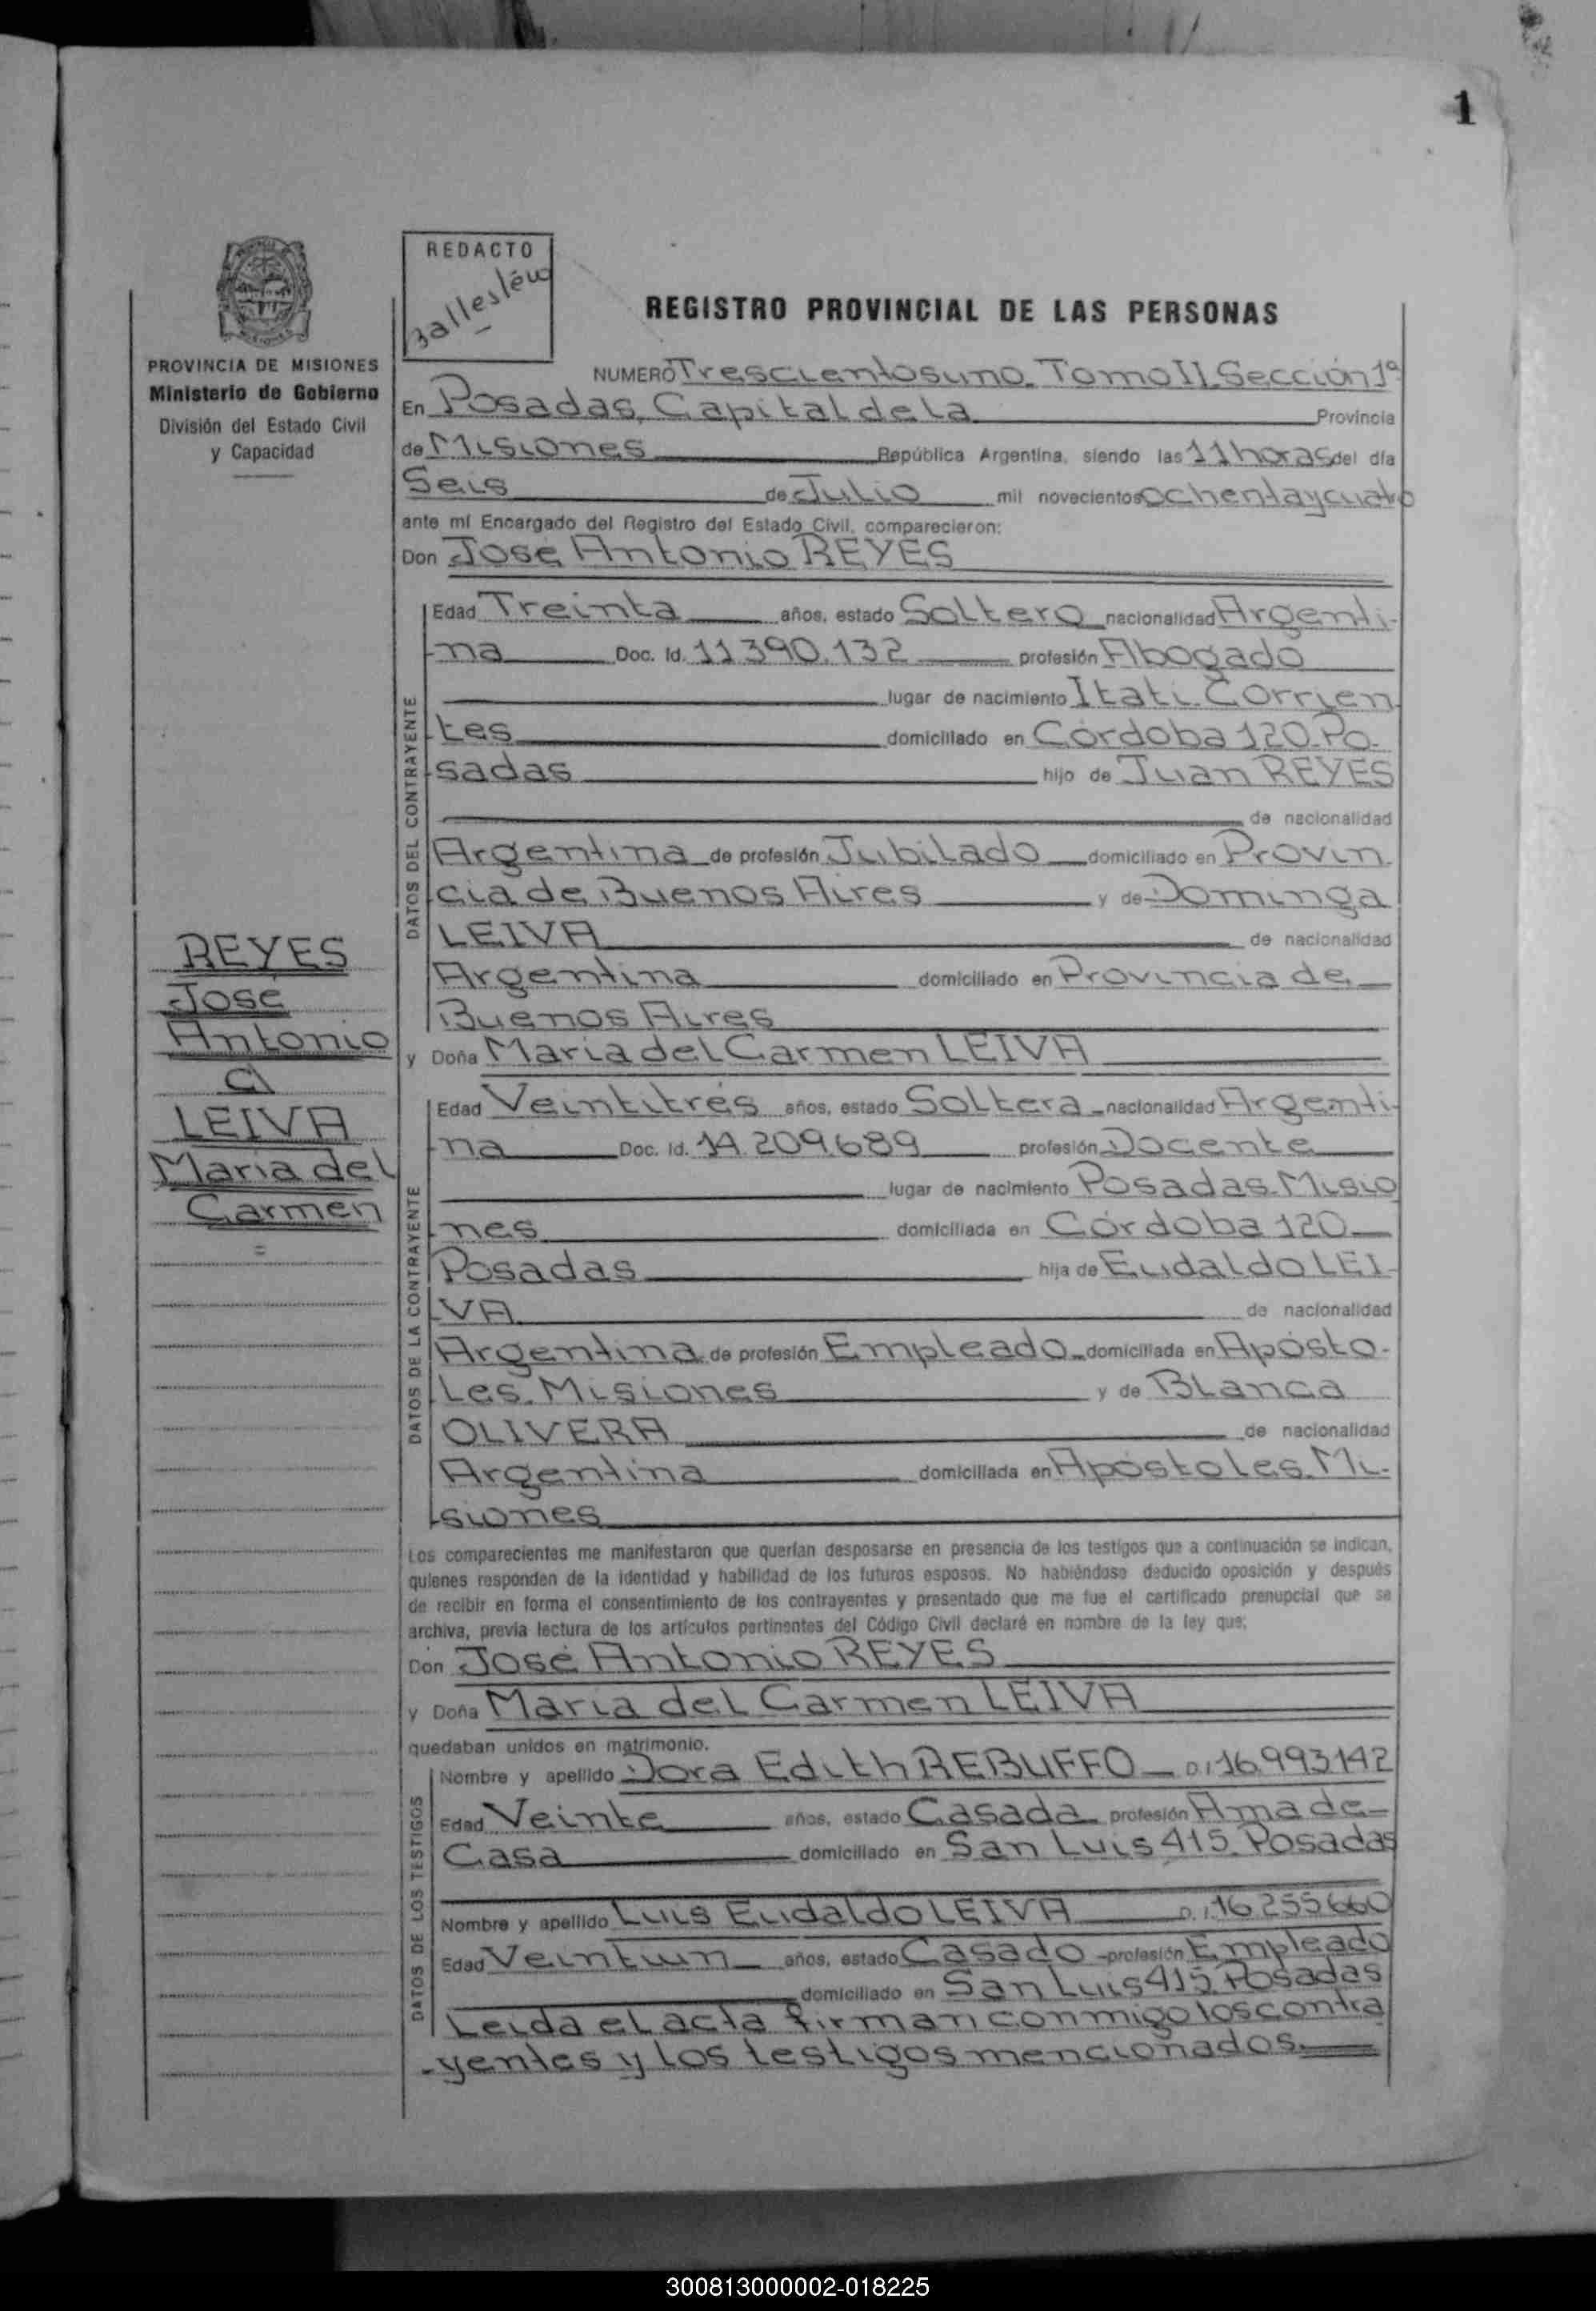 1
REDACTO
PROVINCIA DE MISIONES
Ministerio de Gobierno
División del Estado Civil
y Capacidad
REGISTRO PROVINCIAL DE LAS PERSONAS
NUMERO Trescientos uno. Tomo II. Sección 1ª
En Posadas, Capital de la Provincia
de Misiones República Argentina, siendo las 11 horas del día
Seis de Julio mil novecientos ochenta y cuatro
ante mí Encargado del Registro del Estado Civil, comparecieron:
Don José Antonio REYES
DATOS DEL CONTRAYENTE
Edad Treinta años, estado Soltero nacionalidad Argenti-
na Doc. Id. 11.390.132 profesión Abogado
lugar de nacimiento Itatí. Corrien
tes domiciliado en Córdoba 120. Po-
sadas hijo de Juan REYES
de nacionalidad
Argentina de profesión Jubilado domiciliado en Provin
cia de Buenos Aires y de Dominga
LEIVA de nacionalidad
Argentina domiciliado en Provincia de
Buenos Aires
REYES
José
Antonio
c/
LEIVA
María del
Carmen
=
y Doña María del Carmen LEIVA
DATOS DE LA CONTRAYENTE
Edad Veintitrés años, estado Soltera nacionalidad Argenti-
na Doc. Id. 14.209.689 profesión Docente
lugar de nacimiento Posadas. Misio
nes domiciliada en Córdoba 120
Posadas hija de Eudaldo LEI-
VA de nacionalidad
Argentina de profesión Empleado domiciliada en Apósto-
les. Misiones y de Blanca
OLIVERA de nacionalidad
Argentina domiciliada en Apóstoles. Mi-
siones
Los comparecientes me manifestaron que querían desposarse en presencia de los testigos que a continuación se indican,
quienes responden de la identidad y habilidad de los futuros esposos. No habiéndose deducido oposición y después
de recibir en forma el consentimiento de los contrayentes y presentado que me fue el certificado prenupcial que se
archiva, previa lectura de los artículos pertinentes del Código Civil declaré en nombre de la ley que;
Don José Antonio REYES
y Doña María del Carmen LEIVA
quedaban unidos en matrimonio.
DATOS DE LOS TESTIGOS
Nombre y apellido Dora Edith REBUFFO D.I 16.993.142
Edad Veinte años, estado Casada profesión Ama de
Casa domiciliado en San Luis 415. Posadas
Nombre y apellido Luis Eudaldo LEIVA D.I. 16.255.660
Edad Veintiun años, estado Casado profesión Empleado
domiciliado en San Luis 415 Posadas
Leída el acta firman conmigo los contra
-yentes y los testigos mencionados.
300813000002-018225